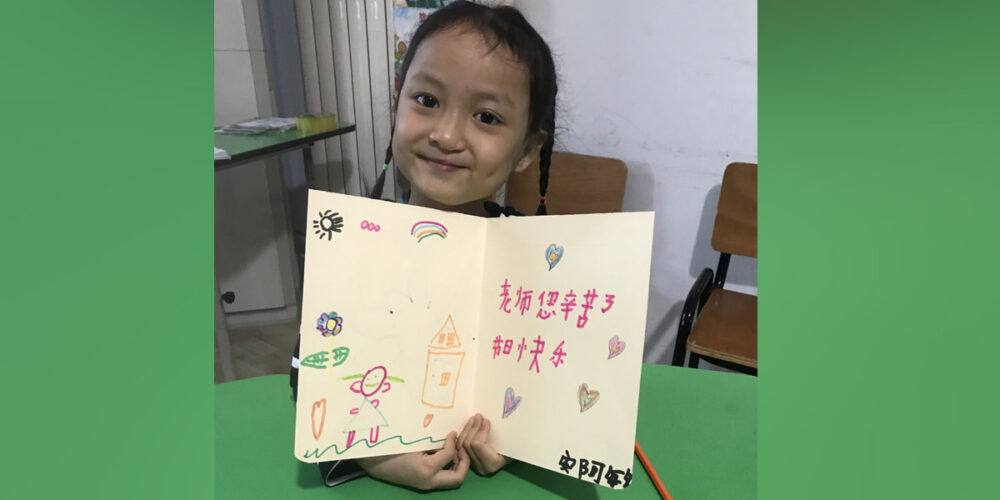 老师您辛苦了
节日快乐
安阿